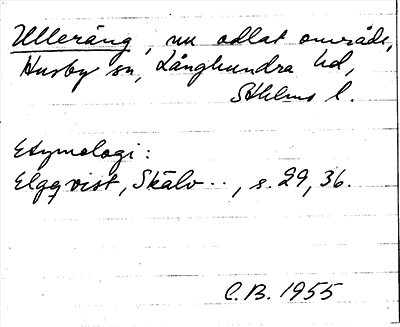 Ulleräng, nu odlat område,
Husby sn, Långhundra hd,
Sthlms l.
Etymologi:
Elgqvist, Skälv.., s. 29, 36.
C.B. 1955